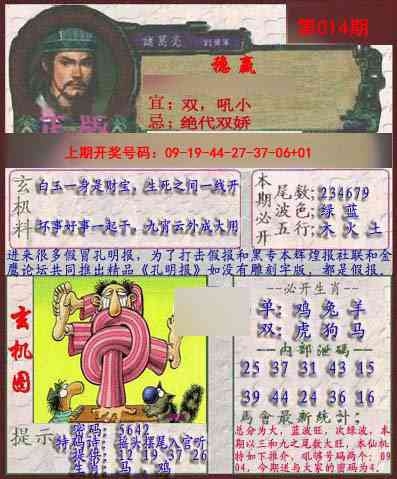 第014期
诸葛亮
稳赢
宜：双，吼小
忌：绝代双娇
正版
上期开奖号码：09-19-44-27-37-06+01
玄机料
白玉一身是财宝，生死之间一线开
坏事好事一起干。九霄云外成大用
本期必开
尾数：234679
波色：绿 蓝
五行：木 火 土
进来很多假冒孔明报，为了打击假报和黑专本辉煌报社联和金
鹰论坛共同推出精品《孔明报》如没有雕刻字版，都是假报。
玄机图
--必开生肖--
单：鸡 兔 羊
双：虎 狗 马
--内部泄码--
25 37 31 43 15
39 44 24 36 16
马會最新统计：
总分为大，蓝波旺，次绿波，本
期以三和九之尾数大旺，本仙机
特如下推介，吼够号码两个：09
04，今期送与大家的密码为4，
提示
密码：5642
特码诗：摇头摆尾入官听
提供：12 19 37 26
生肖：马，鸡